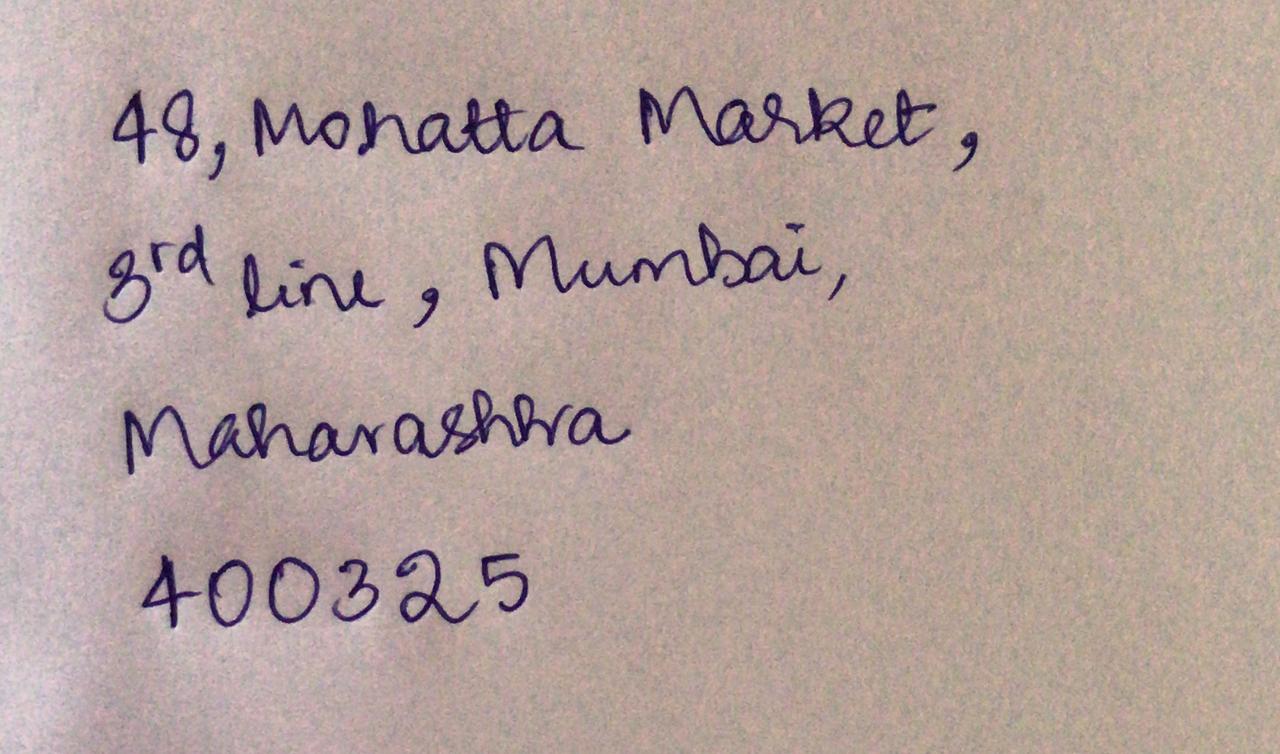 48, Mohatta Market,
3rd line, Mumbai,
Maharashtra
400325